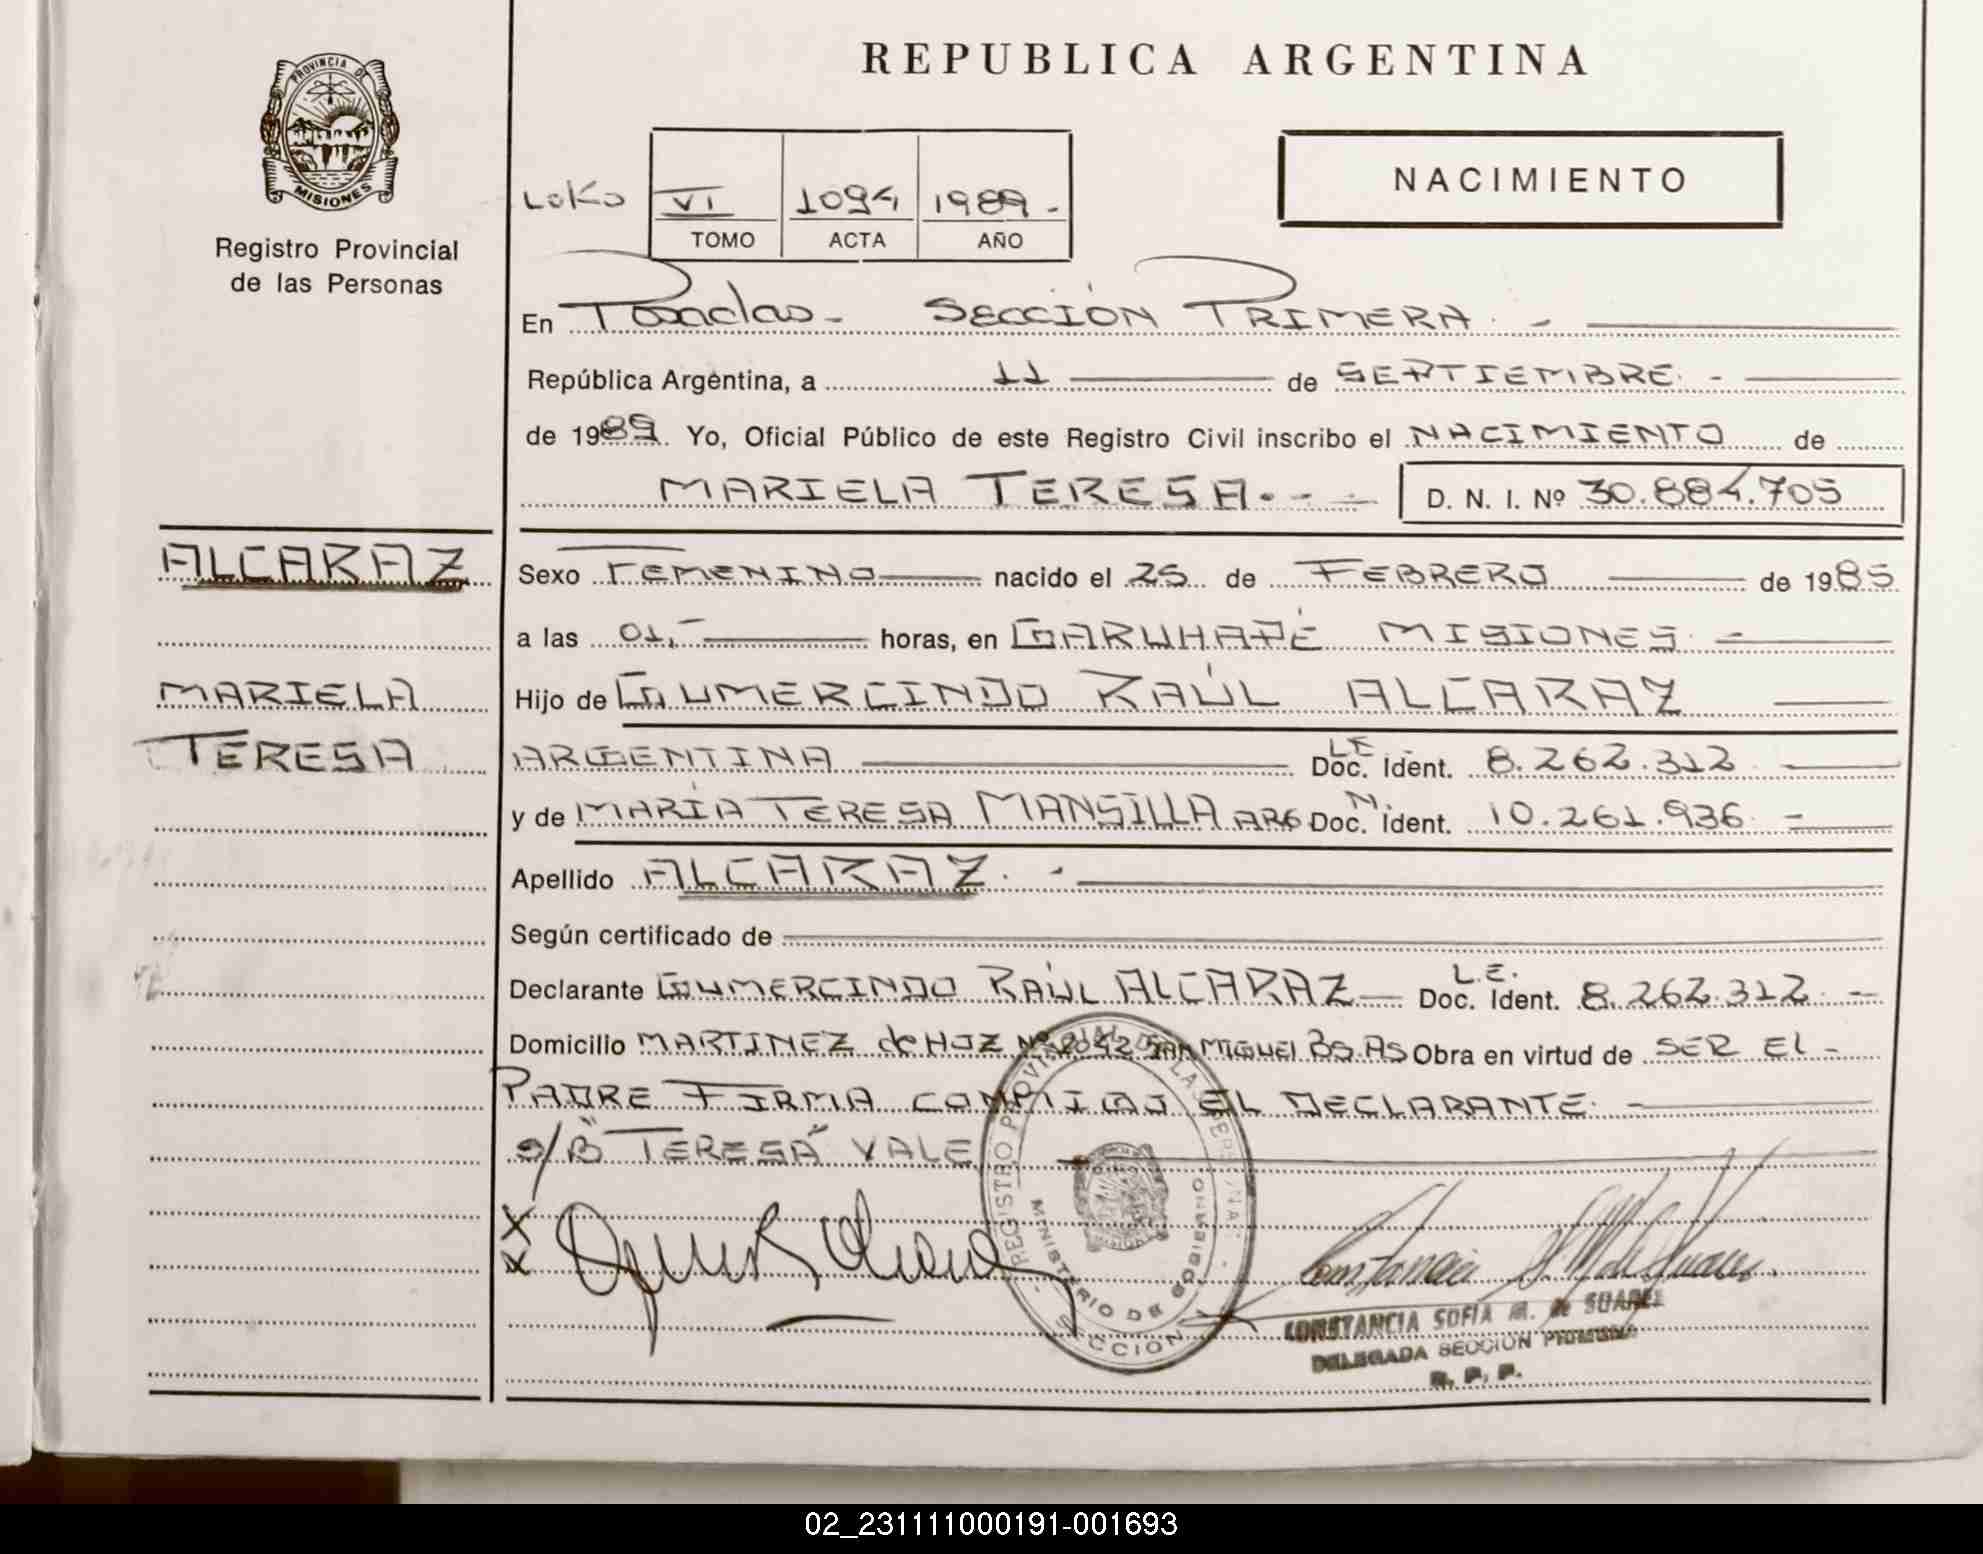 PROVINCIA DE
MISIONES
Registro Provincial
de las Personas
REPUBLICA ARGENTINA
NACIMIENTO
VI 1094 1989.-
TOMO ACTA AÑO
En Posadas - SECCIÓN PRIMERA. -
República Argentina, a 11 de SEPTIEMBRE. -
de 1989. Yo, Oficial Público de este Registro Civil inscribo el NACIMIENTO de
MARIELA TERESA. - - -
D. N. I. Nº 30.884.705
ALCARAZ
MARIELA
TERESA
Sexo FEMENINO nacido el 25 de FEBRERO de 1985
a las 01,- horas, en GARUHAPÉ MISIONES. -
Hijo de GUMERCINDO RAÚL ALCARAZ
ARGENTINA LE Doc. Ident. 8.262.312
y de MARÍA TERESA MANSILLA ARG Doc. N. Ident. 10.261.936. -
Apellido ALCARAZ. -
Según certificado de
Declarante GUMERCINDO RAÚL ALCARAZ - L.E. Doc. Ident. 8.262.312. -
Domicilio MARTINEZ de HOZ Nº 2042 SAN MIGUEL BS.AS Obra en virtud de SER EL -
PADRE FIRMA CONMIGO EL DECLARANTE. -
s/B "TERESA" VALE
REGISTRO PROVINCIAL DE LAS PERSONAS
MINISTERIO DE GOBIERNO
SECCION 1
CONSTANCIA SOFIA M. de SUAREZ
DELEGADA SECCION PRIMERA
R. P. P.
02_231111000191-001693